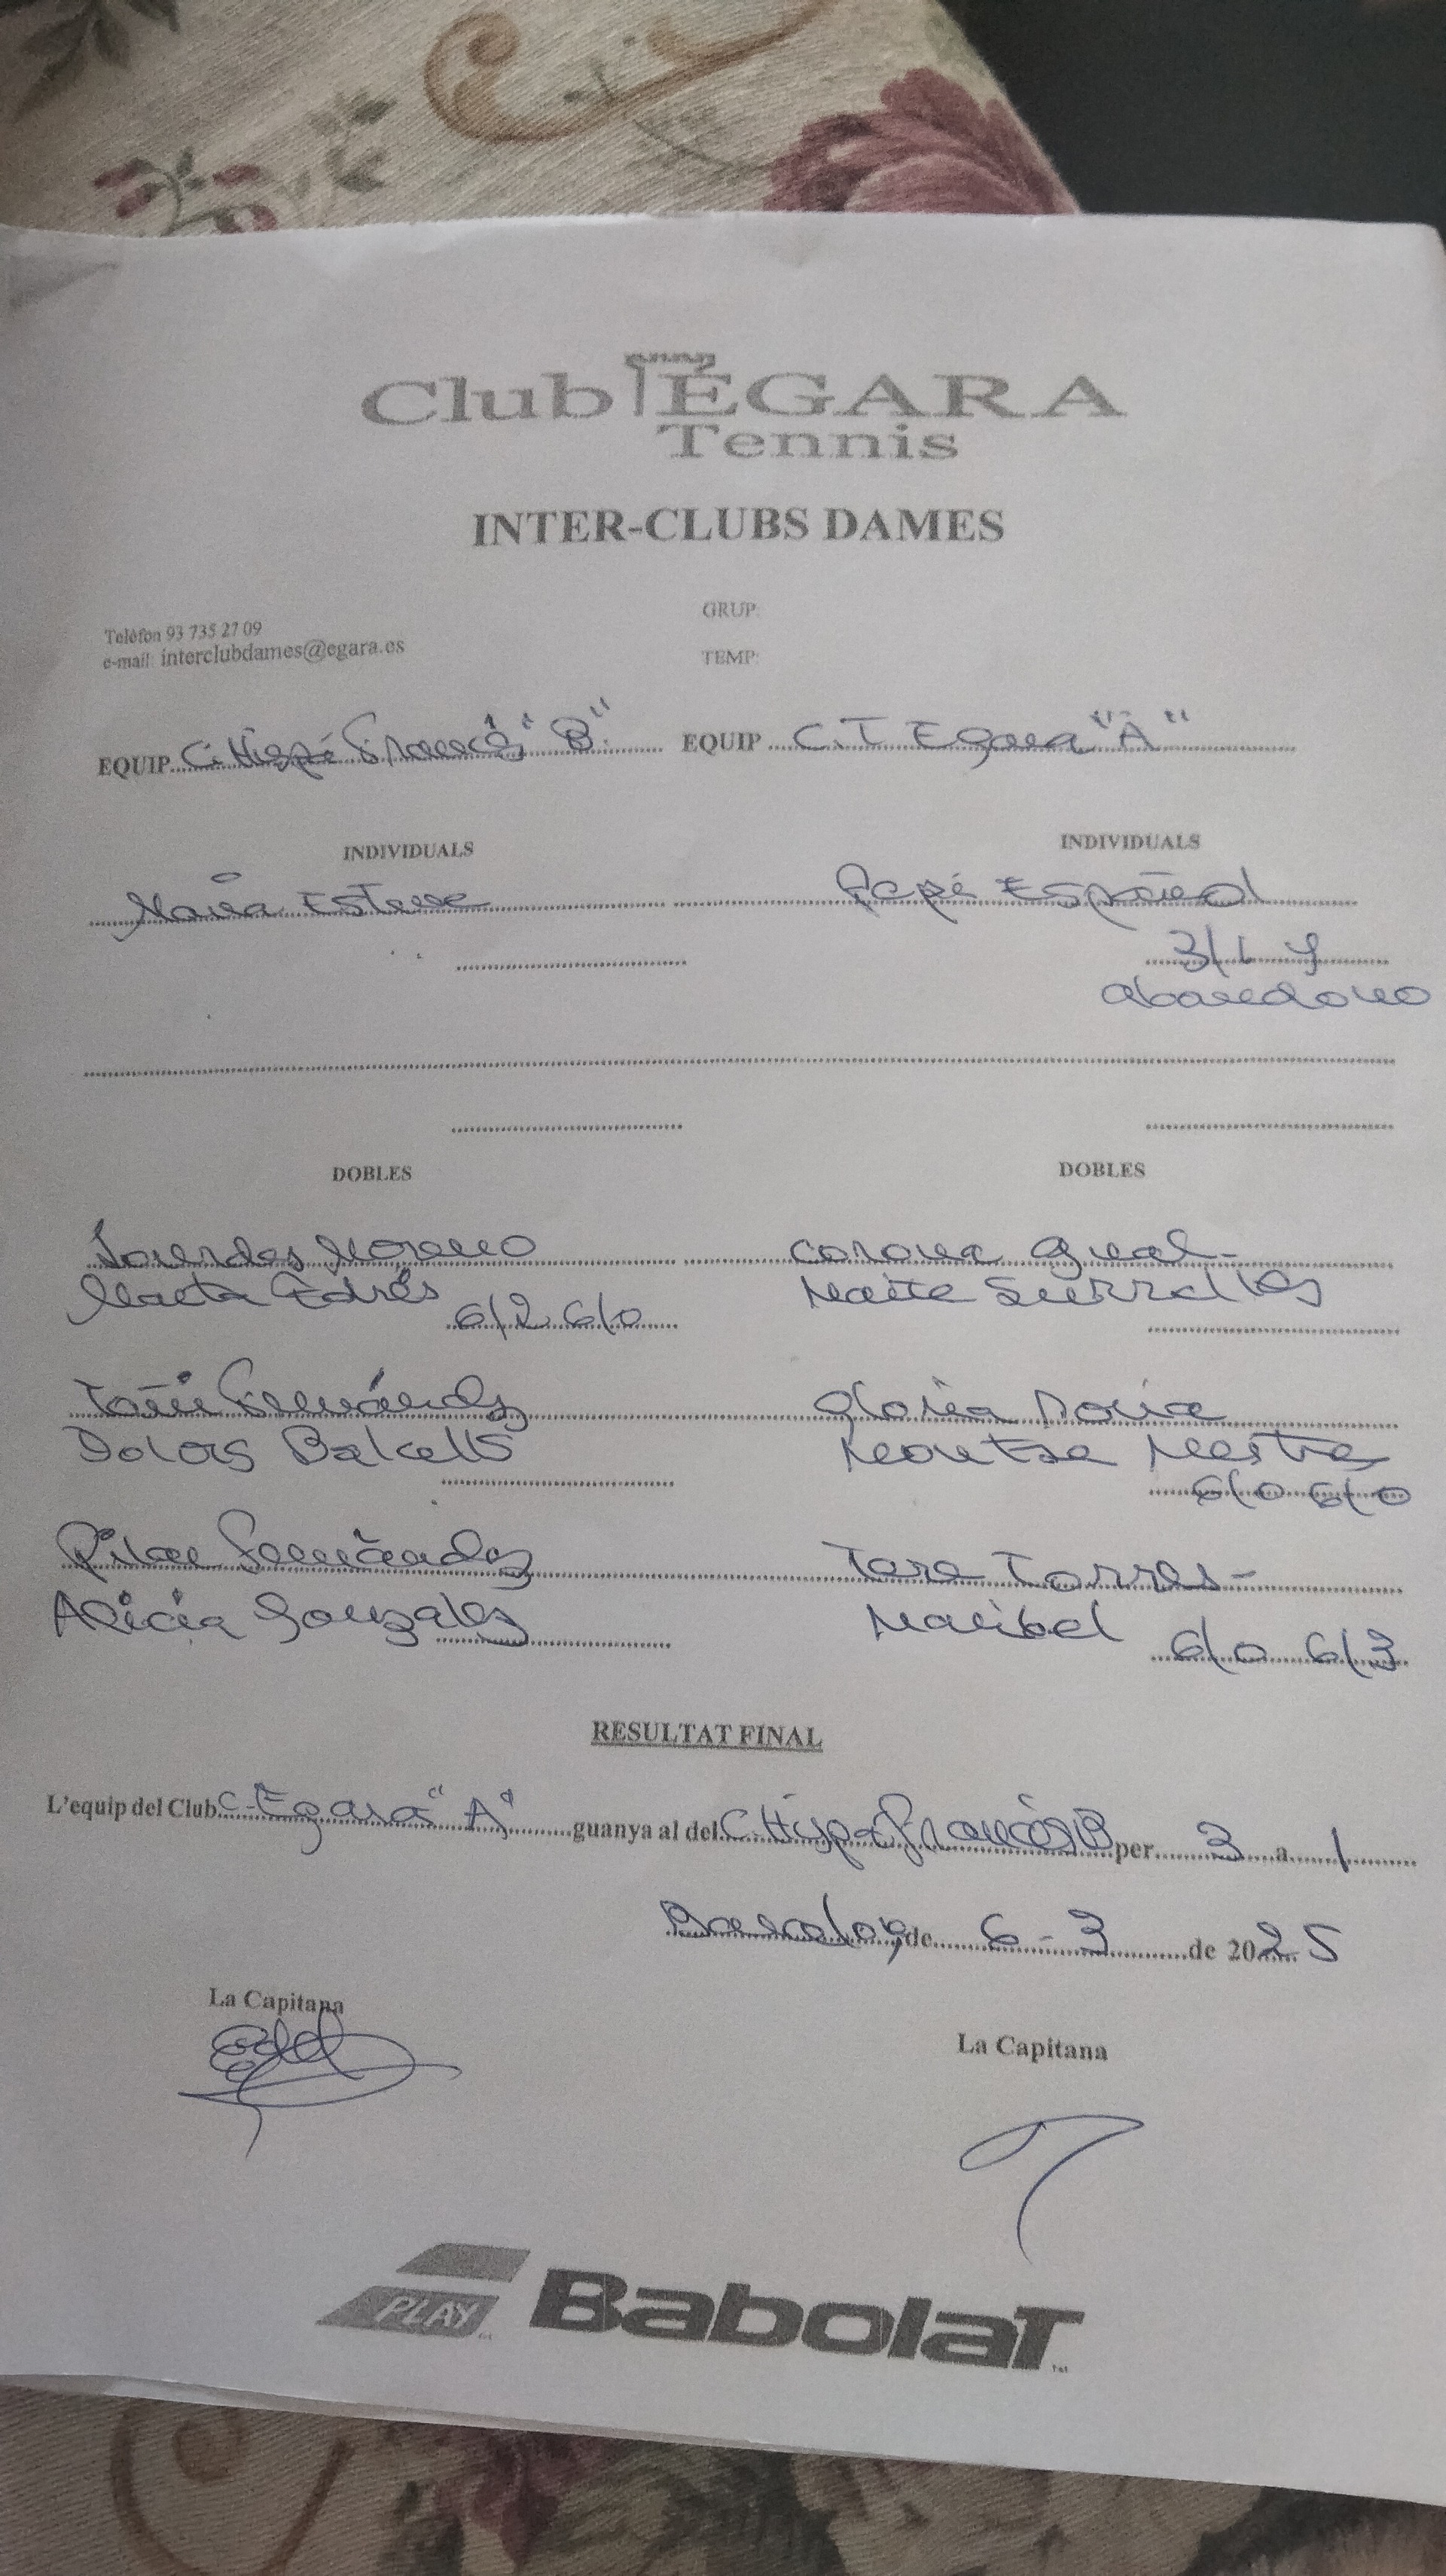 Club ÈGARA
Tennis
INTER-CLUBS DAMES
GRUP:
Telèfon 93 735 27 09
e-mail: interclubdames@egara.es
TEMP:
EQUIP C. Hispé Francés "B" EQUIP C.T Egara "A"
INDIVIDUALS INDIVIDUALS
Maria Esteve Pepi Español
3/1 y
abandono
DOBLES DOBLES
Lourdes Moreno Corona Gual-
Marta Edrés Maite Surralles
6/2 6/0
Toñi Fernández Gloria
Dolors Balcells Montse Mestres
6/0 6/0
Pilar Fernández Tere Torres-
Alicia Gonzales Maribel 6/0 6/3
RESULTAT FINAL
L'equip del Club C. Egara "A" guanya al del C. Hispa Francés B per 3 a 1
de 6-3 de 2025
La Capitana
La Capitana
PLAY BaBolaT